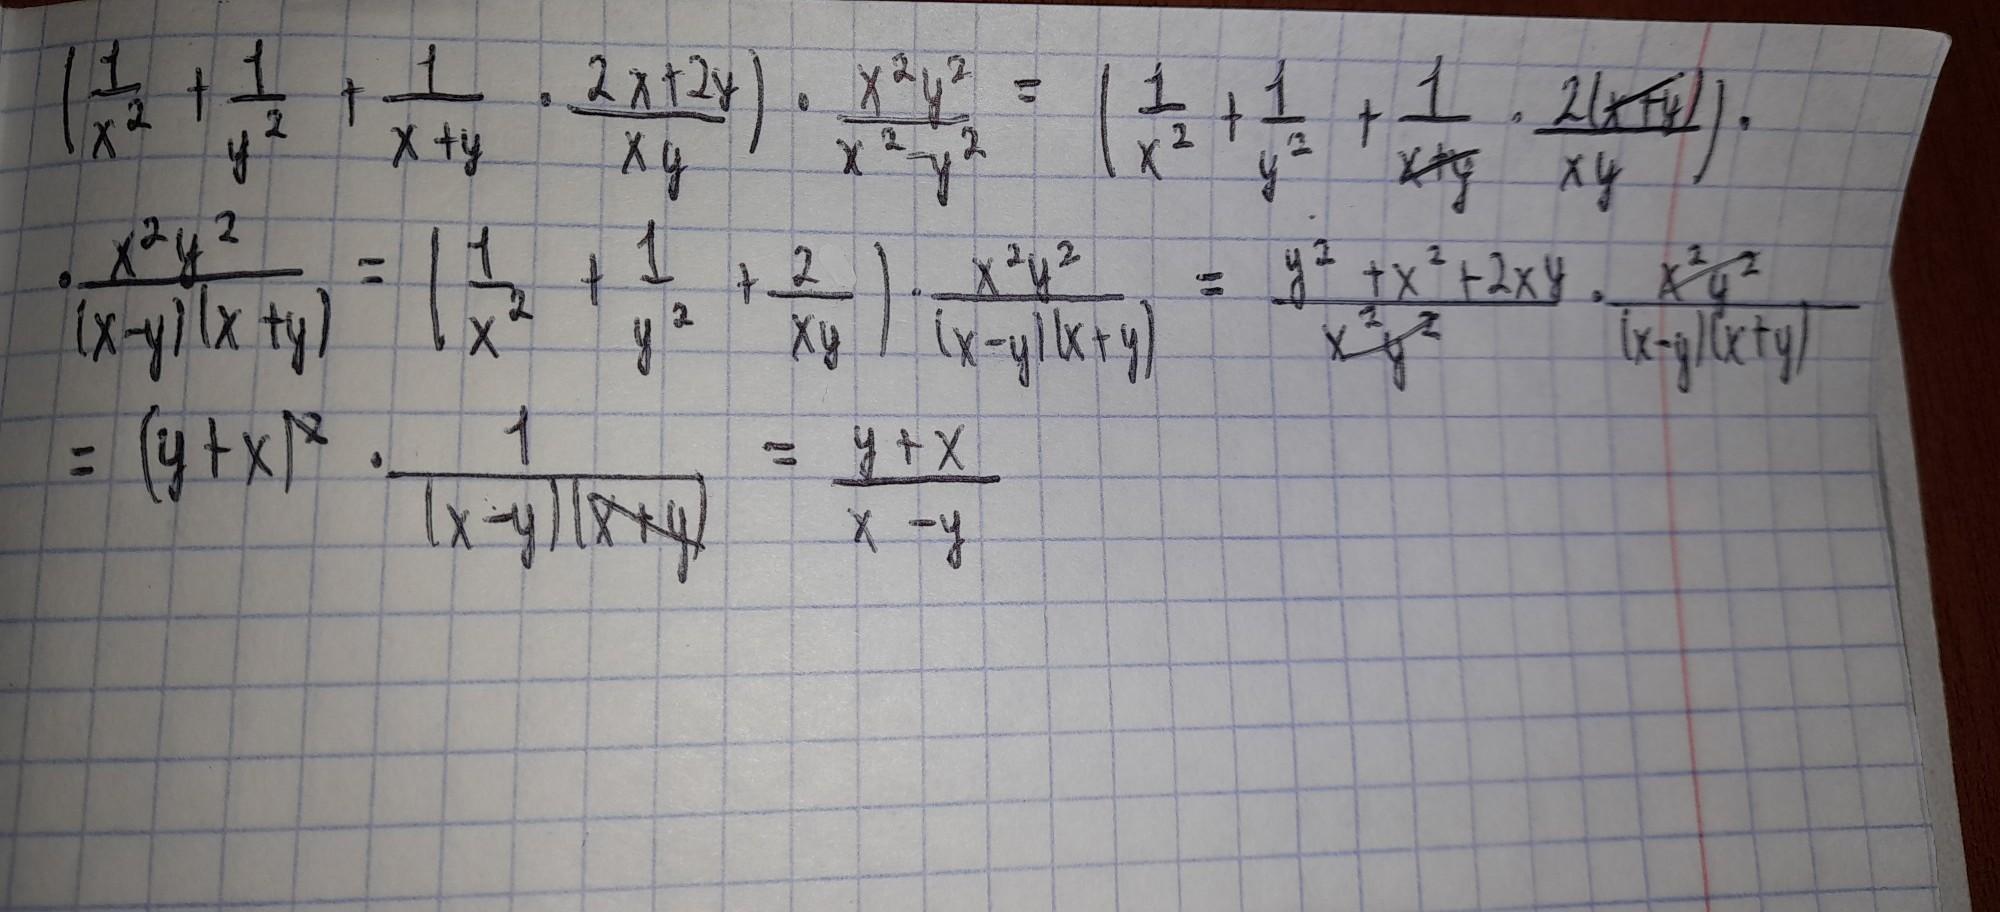 (1/x² + 1/y² + 1/(x+y) · (2x+2y)/(xy)) · x²y²/(x²-y²) = (1/x² + 1/y² + 1/(x+y) · 2(x+y)/(xy)) ·
· x²y²/((x-y)(x+y)) = (1/x² + 1/y² + 2/(xy)) · x²y²/((x-y)(x+y)) = (y²+x²+2xy)/(x²y²) · x²y²/((x-y)(x+y))
= (y+x)² · 1/((x-y)(x+y)) = (y+x)/(x-y)